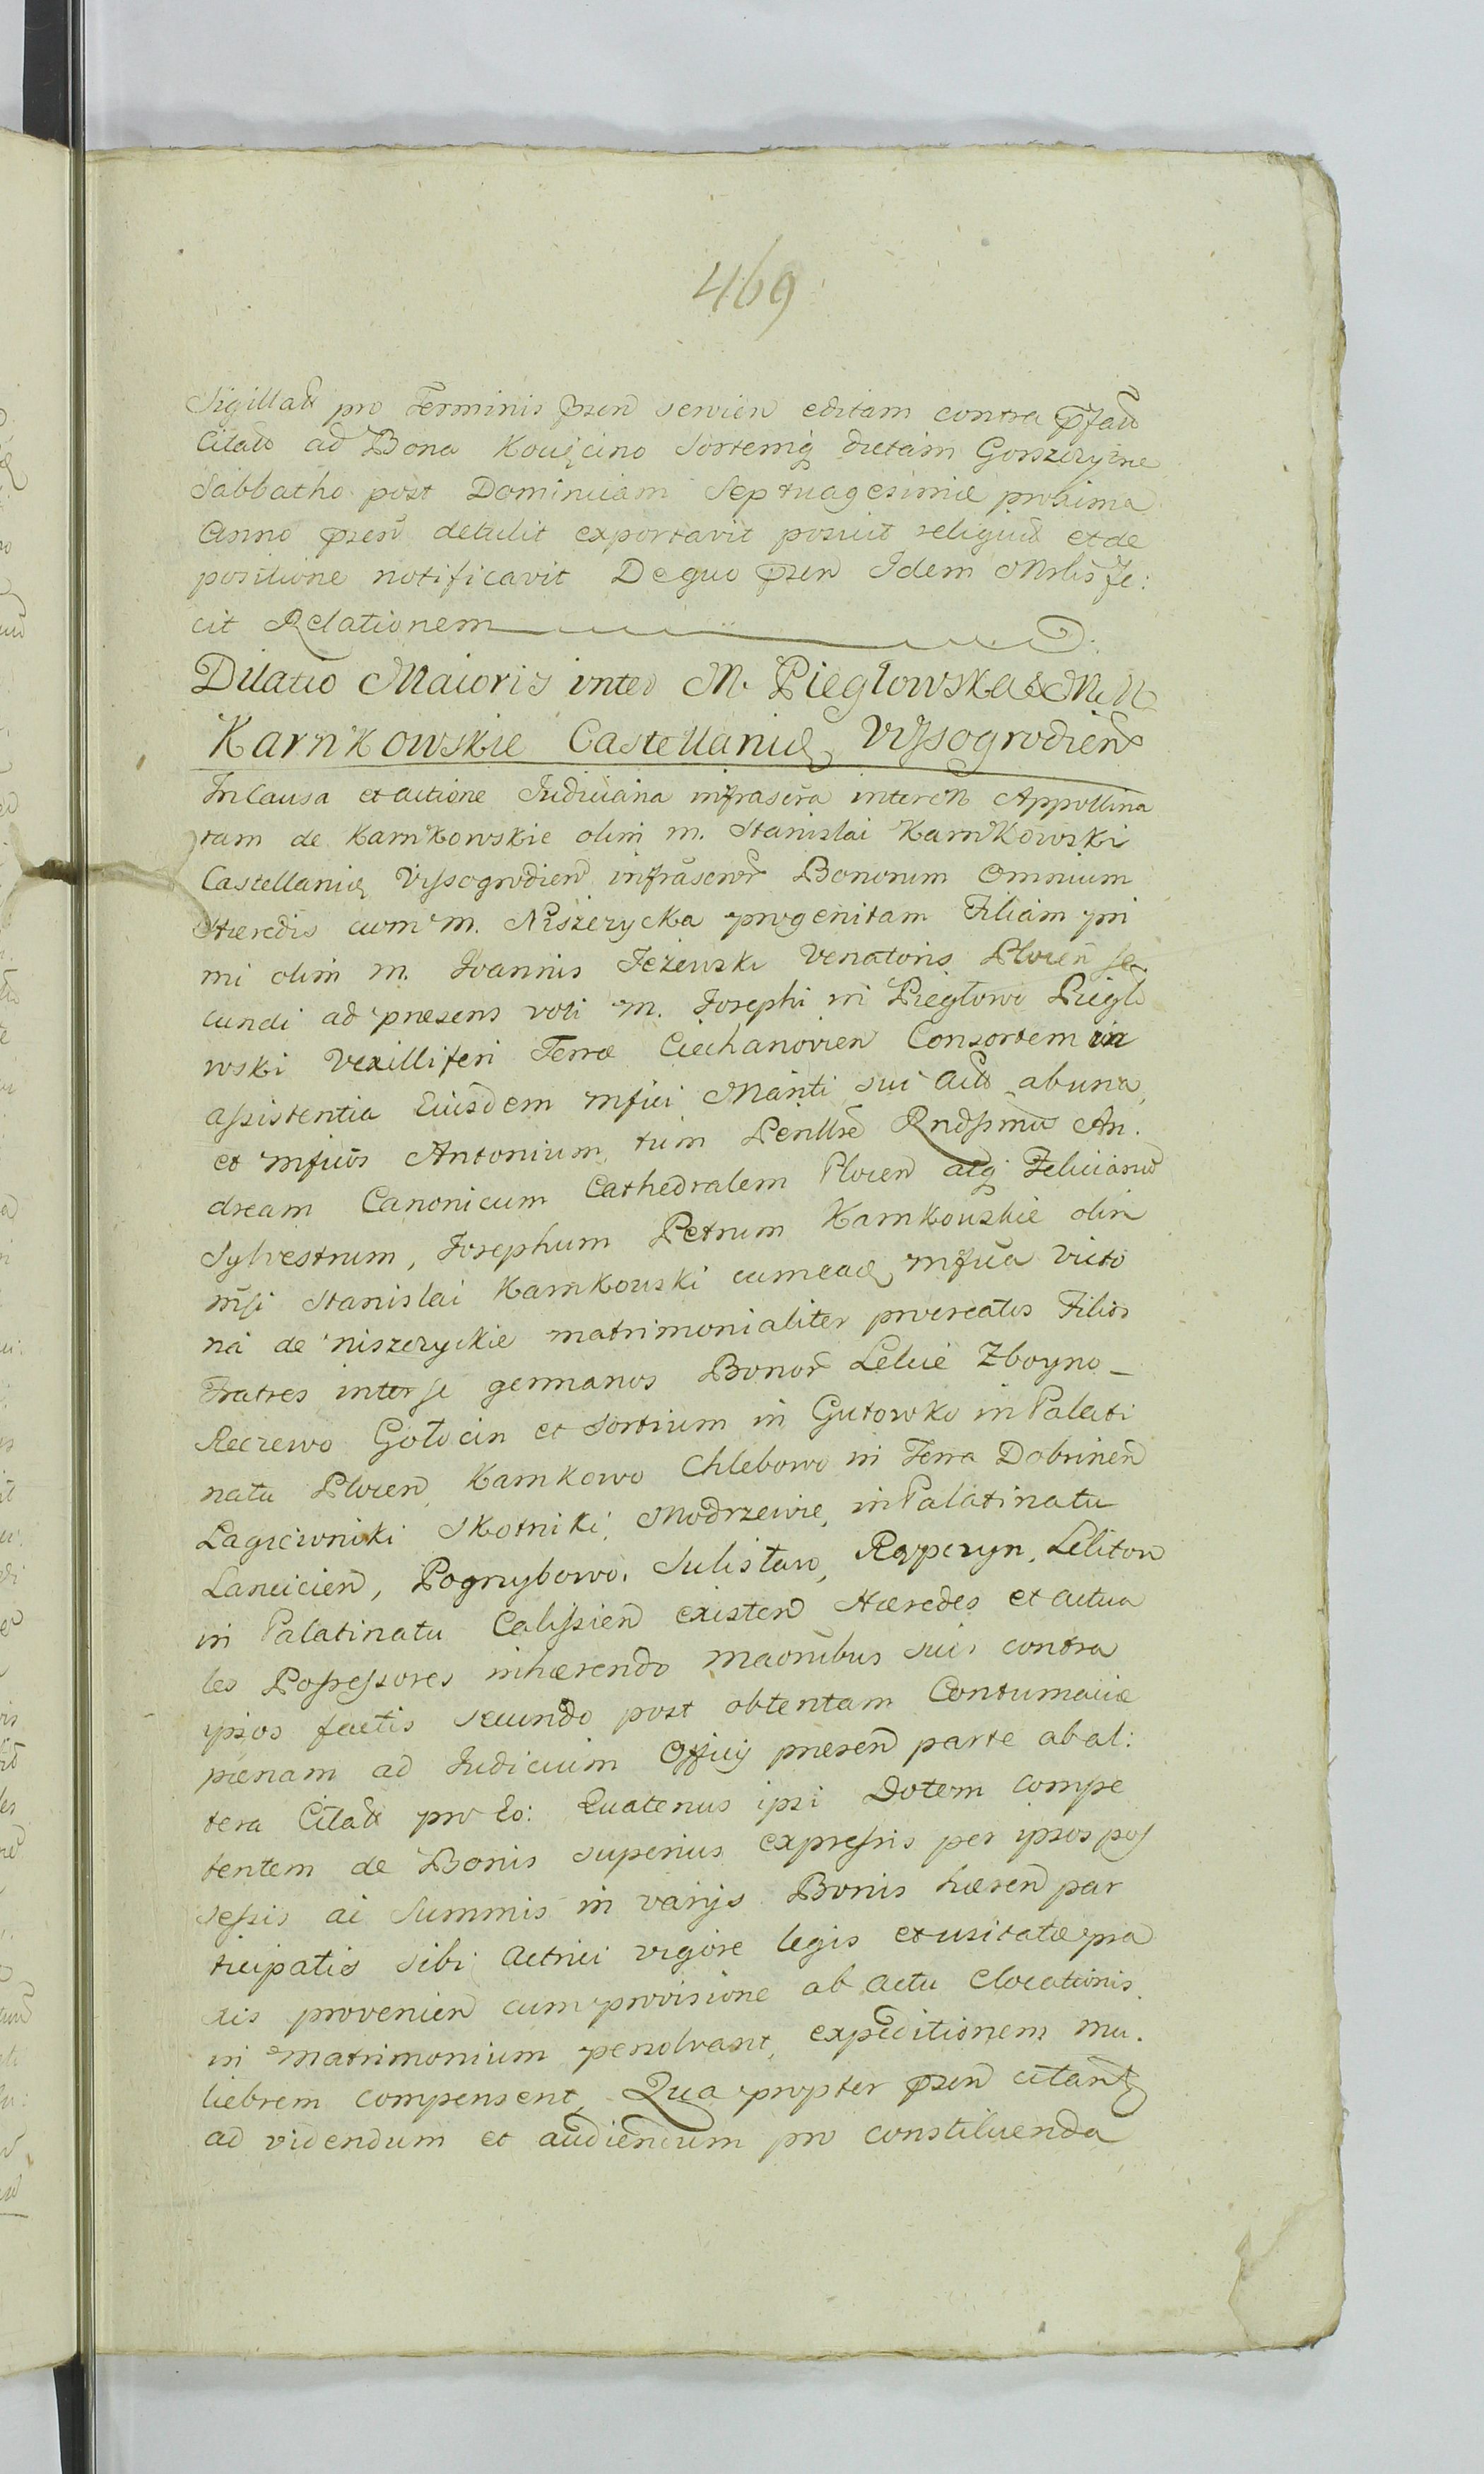 469
Sigillatt pro Terminis pzen servien editam contra pfatt
Citatt ad Bona Kowięcino Sortemq dictam Gorszczyzne
Sabbatho post Dominicam Septuagesimæ proxima
Anno pzen detulit exportavit posuit reliquit et de
positione notificavit De quo pzen Idem Mrlis fe:
cit Relationem
Dilatio Maioris inter M. Pieglowska & M. M.
Karnkowskie Castellanię Vissogrodien
In Causa et actione Judiciaria infrascra inter M Appollina
ram de Karnkowskie olim m. Stanislai Karnkowski
Castellanię Vissogrodien infrascror Bonorum Omnium
Hæredis cum m. Niszczycka progenitam Filiam pri
mi olim m. Ioannis Jeżewski Venatoris Plocen se
cundi ad præsens voti m. Josephi in Pieglowo Pieglo
wski Vexilliferi Terræ Ciechanovien Consortem in
assistentia Eiusdem mfici Mariti sui Actt ab una,
et mficos Antonium, tum Perillre Rndssimu An.
dream Canonicum Cathedralem Plocen atq Felicianu
Sylvestrum, Josephum Petrum Karnkowskie olim
mfi Stanislai Karnkowski cum eadę mfica Victo
ria de niszczyckie matrimonialiter procreatos Filios
Fratres inter se germanos Bonor Lelice Zboyno _
Reczewo Gołocin et Sortium in Gutowko in Palati
natu Plocen, Karnkowo Chlebowo in Terra Dobrinen
Lagiewniki Skotniki, Modrzewie, in Palatinatu
Lancicien, Pogrzybowo, Sulisław, Rapczyn, Leliton
in Palatinatu Calissien existen Hæredes et actua
les Possessores inhærendo maonibus suis contra
ipsos factis secundo post obtentam Contumaciæ
pœnam ad Judicium Officij præsen parte ab al:
tera Citatt pro Eo: Quatenus ipsi Dotem compe
tentem de Bonis superius expressis per ipsos pos
sessis ac Summis in varijs Bonis hæren par
ticipatis sibi Actrici vigore legis et usitatæ pra
xis provenien cum provisione ab actu Elocationis
in matrimonium persolvant, expeditionem mu.
liebrem compensent, Qua propter pzen citantę
ad videndum et audiendum pro constituenda